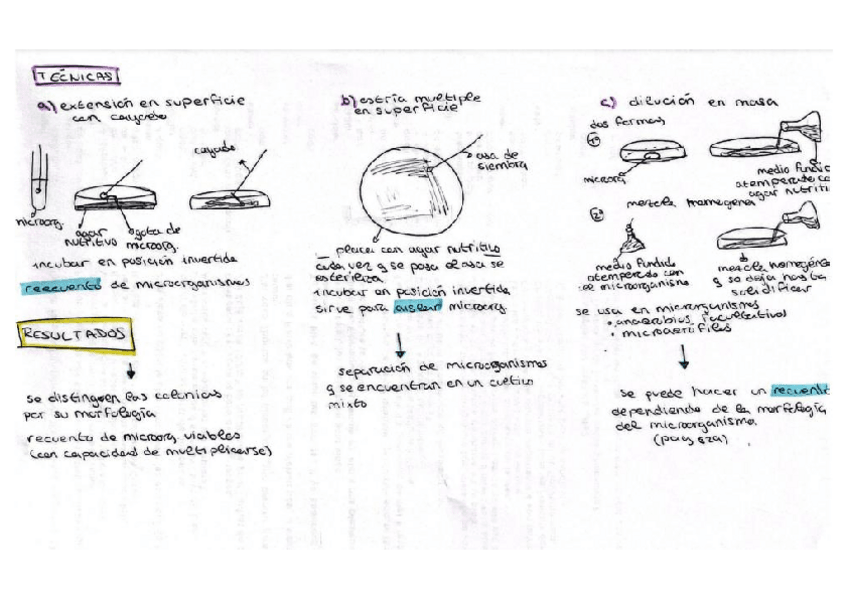 TÉCNICAS
a) extensión en superficie
con cayado
cayado
microorg.
agar
nutritivo
gota de
microorg.
incubar en posición invertida
recuento de microorganismos
b) estría multiple
en superficie
asa de
siembra
placa con agar nutritivo
cada vez q se pasa el asa se
esteriliza
incubar en posición invertida
sirve para aislar microorg.
c) dilución en masa
dos formas
1º
microorg
medio fundid
atemperado co
agar nutriti
mezcla homogenea
2º
medio fundido
atemperado con
el microorganismo
mezcla homogéne
y se deja hasta
solidificar
se usa en microorganismos
• anaerobios facultativos
• microaerófilos
RESULTADOS
se distinguen las colonias
por su morfología
recuento de microorg viables
(con capacidad de multiplicarse)
separación de microorganismos
q se encuentran en un cultivo
mixto
se puede hacer un recuent
dependiendo de la morfología
del microorganismo.